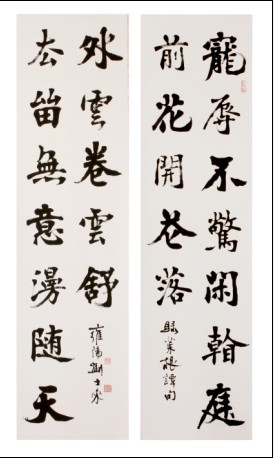 寵辱不驚閑看庭
前花開花落
録菜根譚句
去留無意漫随天
外雲卷雲舒
雍陽劉士